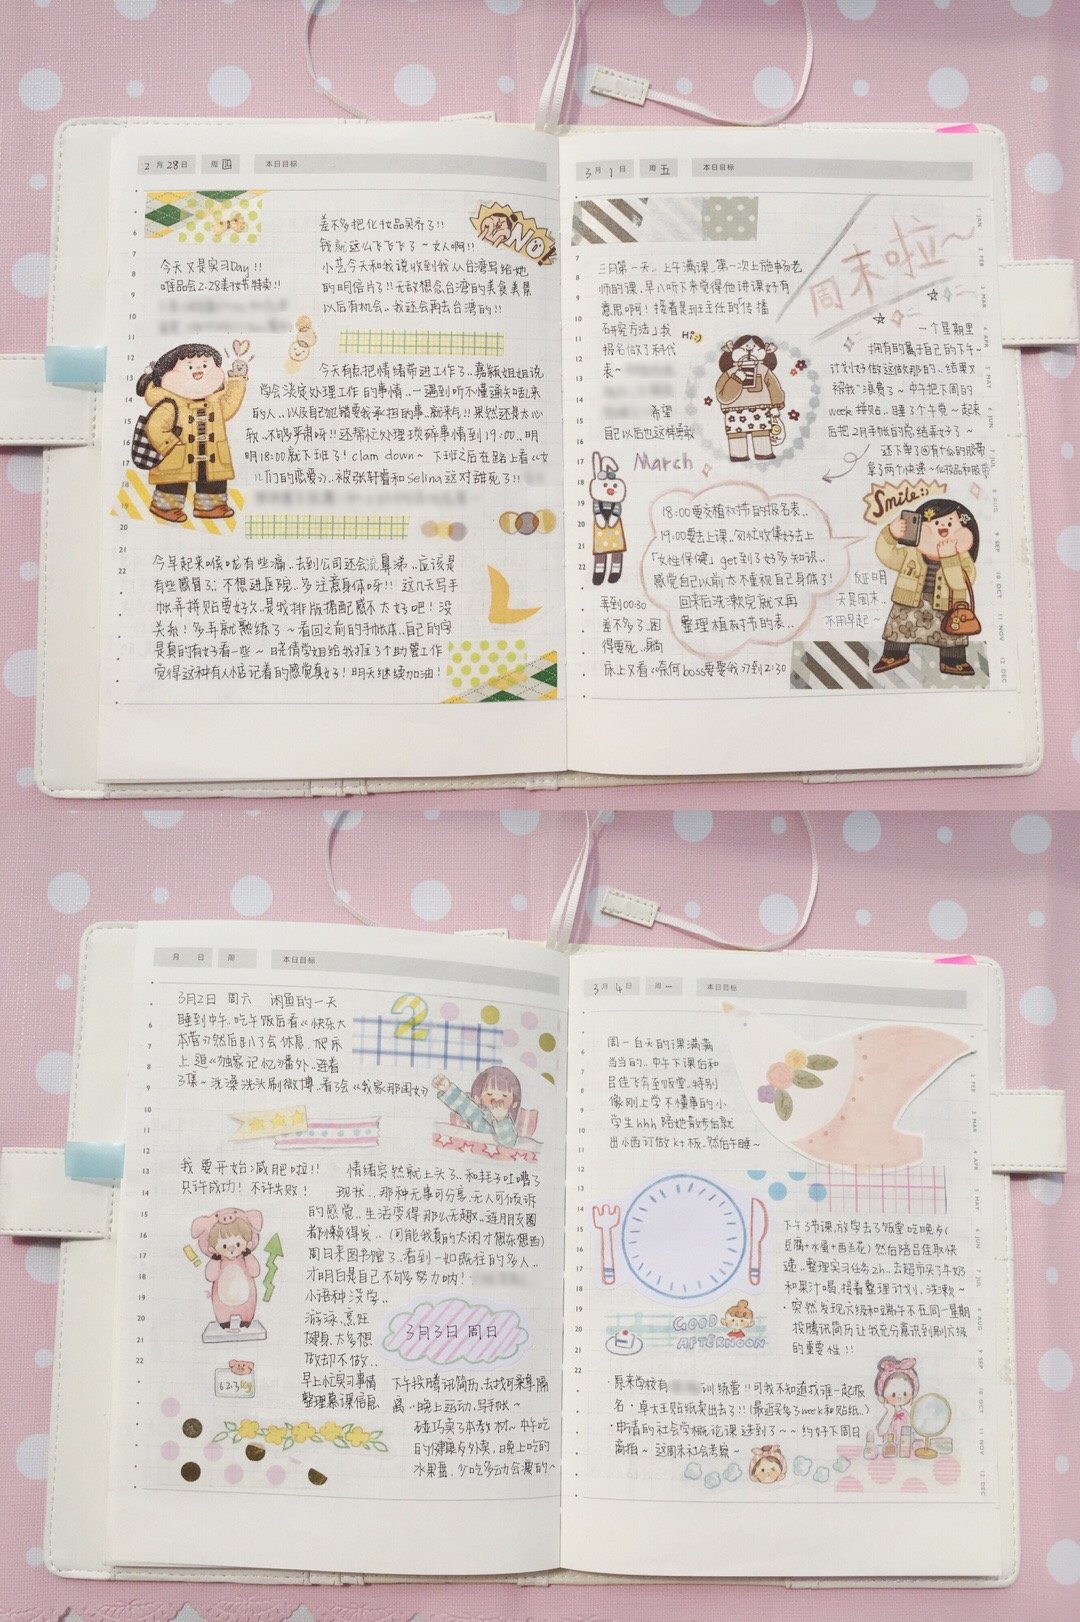 2月28日 周四 本日目标
今天又是实习Day!!
唯品会2.28美妆节特卖!!
差不多把化妆品买齐了!!
钱就这么飞飞飞了~女人啊!!
小艺今天和我说收到我从台湾写给她
的明信片了!!无敌想念台湾的美食美景
以后有机会..我还会再去台湾的!!
NO!
今天有点把情绪带进工作了..嘉颖姐姐说
学会淡定处理工作的事情..一遇到听不懂通知乱来
的人..以及自己犯错要我承担的事..就来气!!果然还是太心
软..不够严肃呀!!还帮忙处理琐碎事情到19:00..明
明18:00就下班了! clam down~ 下班之后在路上看《女
儿们的恋爱》..被张轩睿和Selina这对甜死了!!
今早起来喉咙有些痛..去到公司还会流鼻涕..应该是
有些感冒了..不想进医院..多注意身体呀!! 这几天写手
帐弄拼贴要好久..是我排版搭配感不太好吧!没
关系!多弄就熟练了~看回之前的手帐本..自己的字
是真的有好看一些~ 晓倩学姐给我推了个助管工作
觉得这种有人惦记着的感觉真好!明天继续加油!
3月1日 周五 本日目标
周末啦~
三月第一天..上午满课..第一次上施畅老
师的课..早八听下来觉得他讲课好有
意思啊!接着是班主任的「传播
研究方法」我
报名做了科代
表~
希望
自己以后也这样勇敢
Hi
March
一个星期里
拥有的属于自己的下午~
计划好做这做那的..结果又
被我"浪费了~ 中午把下周的
week拼贴..睡了个午觉~起来
后把2月手帐的总结弄好了~
还下单了@有仙的胶带
拿了两个快递~化妆品和胶带
Smile:)
18:00要交植树节的报名表..
19:00要去上课..匆忙收集好去上
「女性保健」get到了好多知识..
感觉自己以前太不重视自己身体了!
回来后洗漱完就又再
整理植树节的表..
弄到00:30
差不多了..困
得要死..躺
床上又看《奈何boss要娶我》到2:30
反正明
天是周末..
不用早起~
月 日 周 本日目标
3月2日 周六 闲鱼的一天
睡到中午..吃午饭后看《快乐大
本营》然后趴了会休息..爬床
上追《独家记忆》番外..连看
3集~洗澡洗头刷微博..看了会《我家那闺女》
2
我要开始减肥啦!!
只许成功!不许失败!
情绪突然就上头了..和耗子吐嘈了
现状..那种无事可分享..无人可倾诉
的感觉..生活变得那么无趣..连朋友圈
都懒得发..(可能我真的太闲才想东想西)
周日来图书馆了..看到一如既往的多人..
才明白是自己不够努力呐!
小语种没学..
游泳、烹饪
健身..太多想
做却不做..
早上忙实习事情
整理慕课信息
62.3kg
3月3日 周日
下午投腾讯简历..去找可柔拿隔
离..晚上运动..写手帐~
碰巧卖了本教材~中午吃
的健康与外卖..晚上吃的
水果盘..少吃多动会瘦的~
3月4日 周一 本日目标
周一白天的课满满
当当的..中午下课后和
吕佳飞奔至饭堂..特别
像刚上学不懂事的小
学生hhh 陪她散步后就
出小西门做kt板..然后午睡~
GOOD
AFTERNOON
下午3节课..放学去了饭堂吃晚乡(
豆腐+水蛋+西兰花)然后陪吕佳取快
递..整理实习任务2h..去超市买了牛奶
和果汁喝..接着整理计划..洗漱~
突然发现六级和端午不在同一星期
投腾讯简历让我充分意识到刷六级
的重要性!!
·原来学校有 训练营!!可我不知道找谁一起报
名·卓大王贴纸卖出去了!!(最近买多了week和贴纸..)
·申请的社会学概论课选到了~~约好下周日
离拍~ 这周末社会考察~